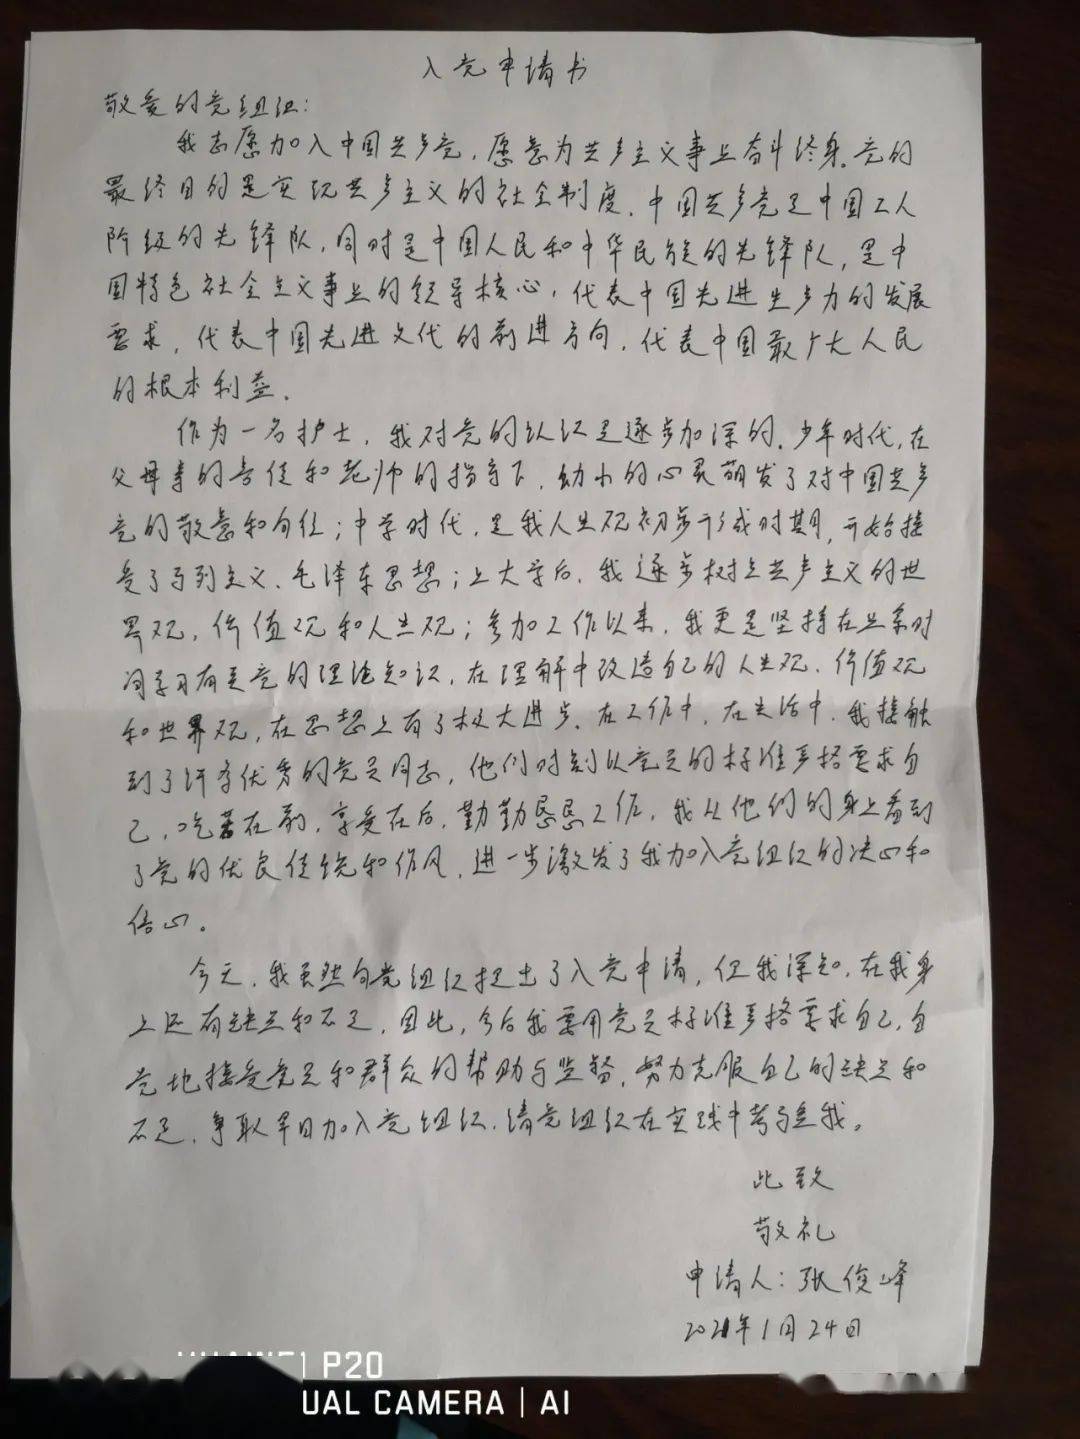 入党申请书
敬爱的党组织：
我志愿加入中国共产党，愿意为共产主义事业奋斗终身。党的
最终目的是实现共产主义的社会制度。中国共产党是中国工人
阶级的先锋队，同时是中国人民和中华民族的先锋队，是中
国特色社会主义事业的领导核心，代表中国先进生产力的发展
要求，代表中国先进文化的前进方向，代表中国最广大人民
的根本利益。
作为一名护士，我对党的认识是逐步加深的。少年时代，在
父母亲的言传和老师的指导下，幼小的心灵萌发了对中国共产
党的敬意和向往；中学时代，是我人生观初步形成时期，开始接
受了马列主义、毛泽东思想；上大学后，我逐步树立共产主义的世
界观，价值观和人生观；参加工作以来，我更是坚持在业余时
间学习有关党的理论知识，在理解中改造自己的人生观、价值观
和世界观，在思想上有了极大进步。在工作中，在生活中，我接触
到了许多优秀的党员同志，他们时刻以党员的标准严格要求自
己，吃苦在前，享受在后，勤勤恳恳工作，我从他们的身上看到
了党的优良传统和作风，进一步激发了我加入党组织的决心和
信心。
今天，我虽然向党组织提出了入党申请，但我深知，在我身
上还有缺点和不足，因此，今后我要用党员标准严格要求自己，自
觉地接受党员和群众的帮助与监督，努力克服自己的缺点和
不足，争取早日加入党组织。请党组织在实践中考验我。
此致
敬礼
申请人：张俊峰
2021年1月24日
P20
UAL CAMERA | AI